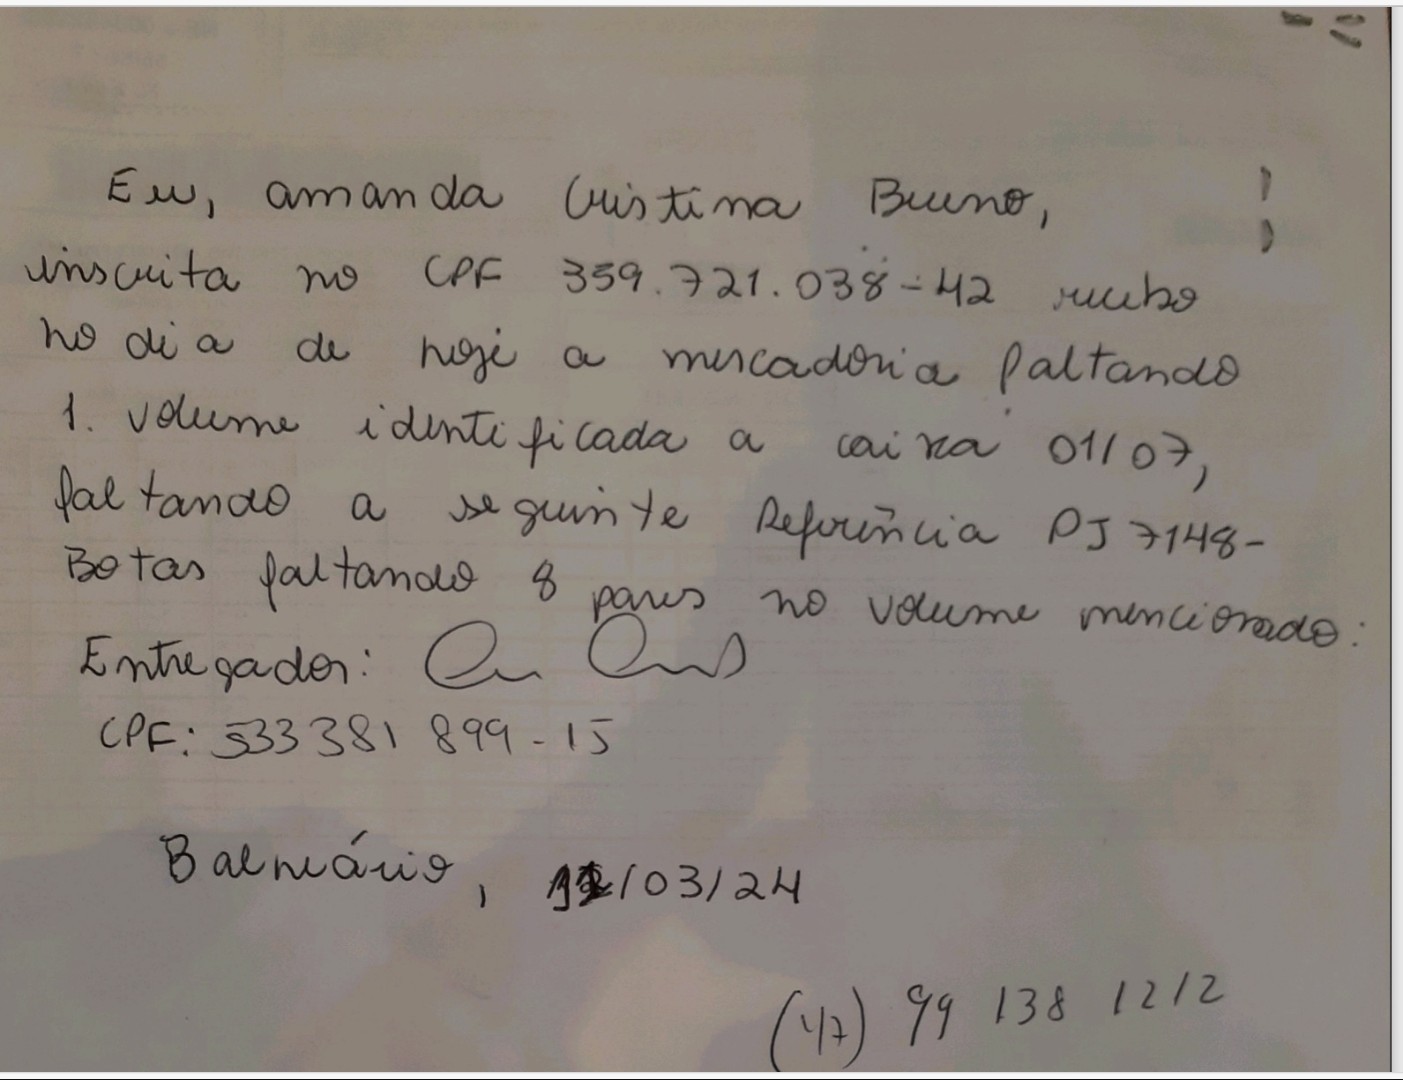 Eu, amanda Cristina Bueno,
inscrita no CPF 359.721.038-42 recebo
no dia de hoje a mercadoria faltando
1. volume identificada a caixa 01/07,
faltando a seguinte Referência PJ7148-
Botas faltando 8 pares no volume mencionado:
Entregador:
CPF: 533381 899-15
Balneário, /03/24
(47) 99 138 1212